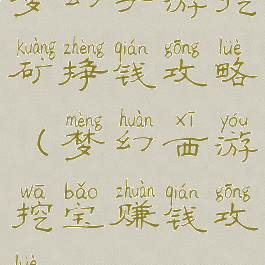 梦幻手游挖
kuàng zhèng qián gōng lüè
矿挣钱攻略
mèng huàn xī yóu
(梦幻西游
wā bǎo zhuàn qián gōng
挖宝赚钱攻
lüè